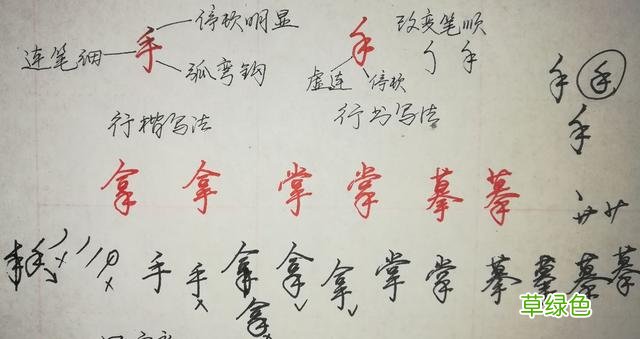 停顿明显
连笔细 手 手 改变笔顺
弧弯钩 虚连 停顿
行楷写法 行书写法
手 手
手
拿 拿 掌 掌 摹 摹
手 手 拿 拿 拿 掌 掌 摹 摹 摹 摹
拿
草绿色